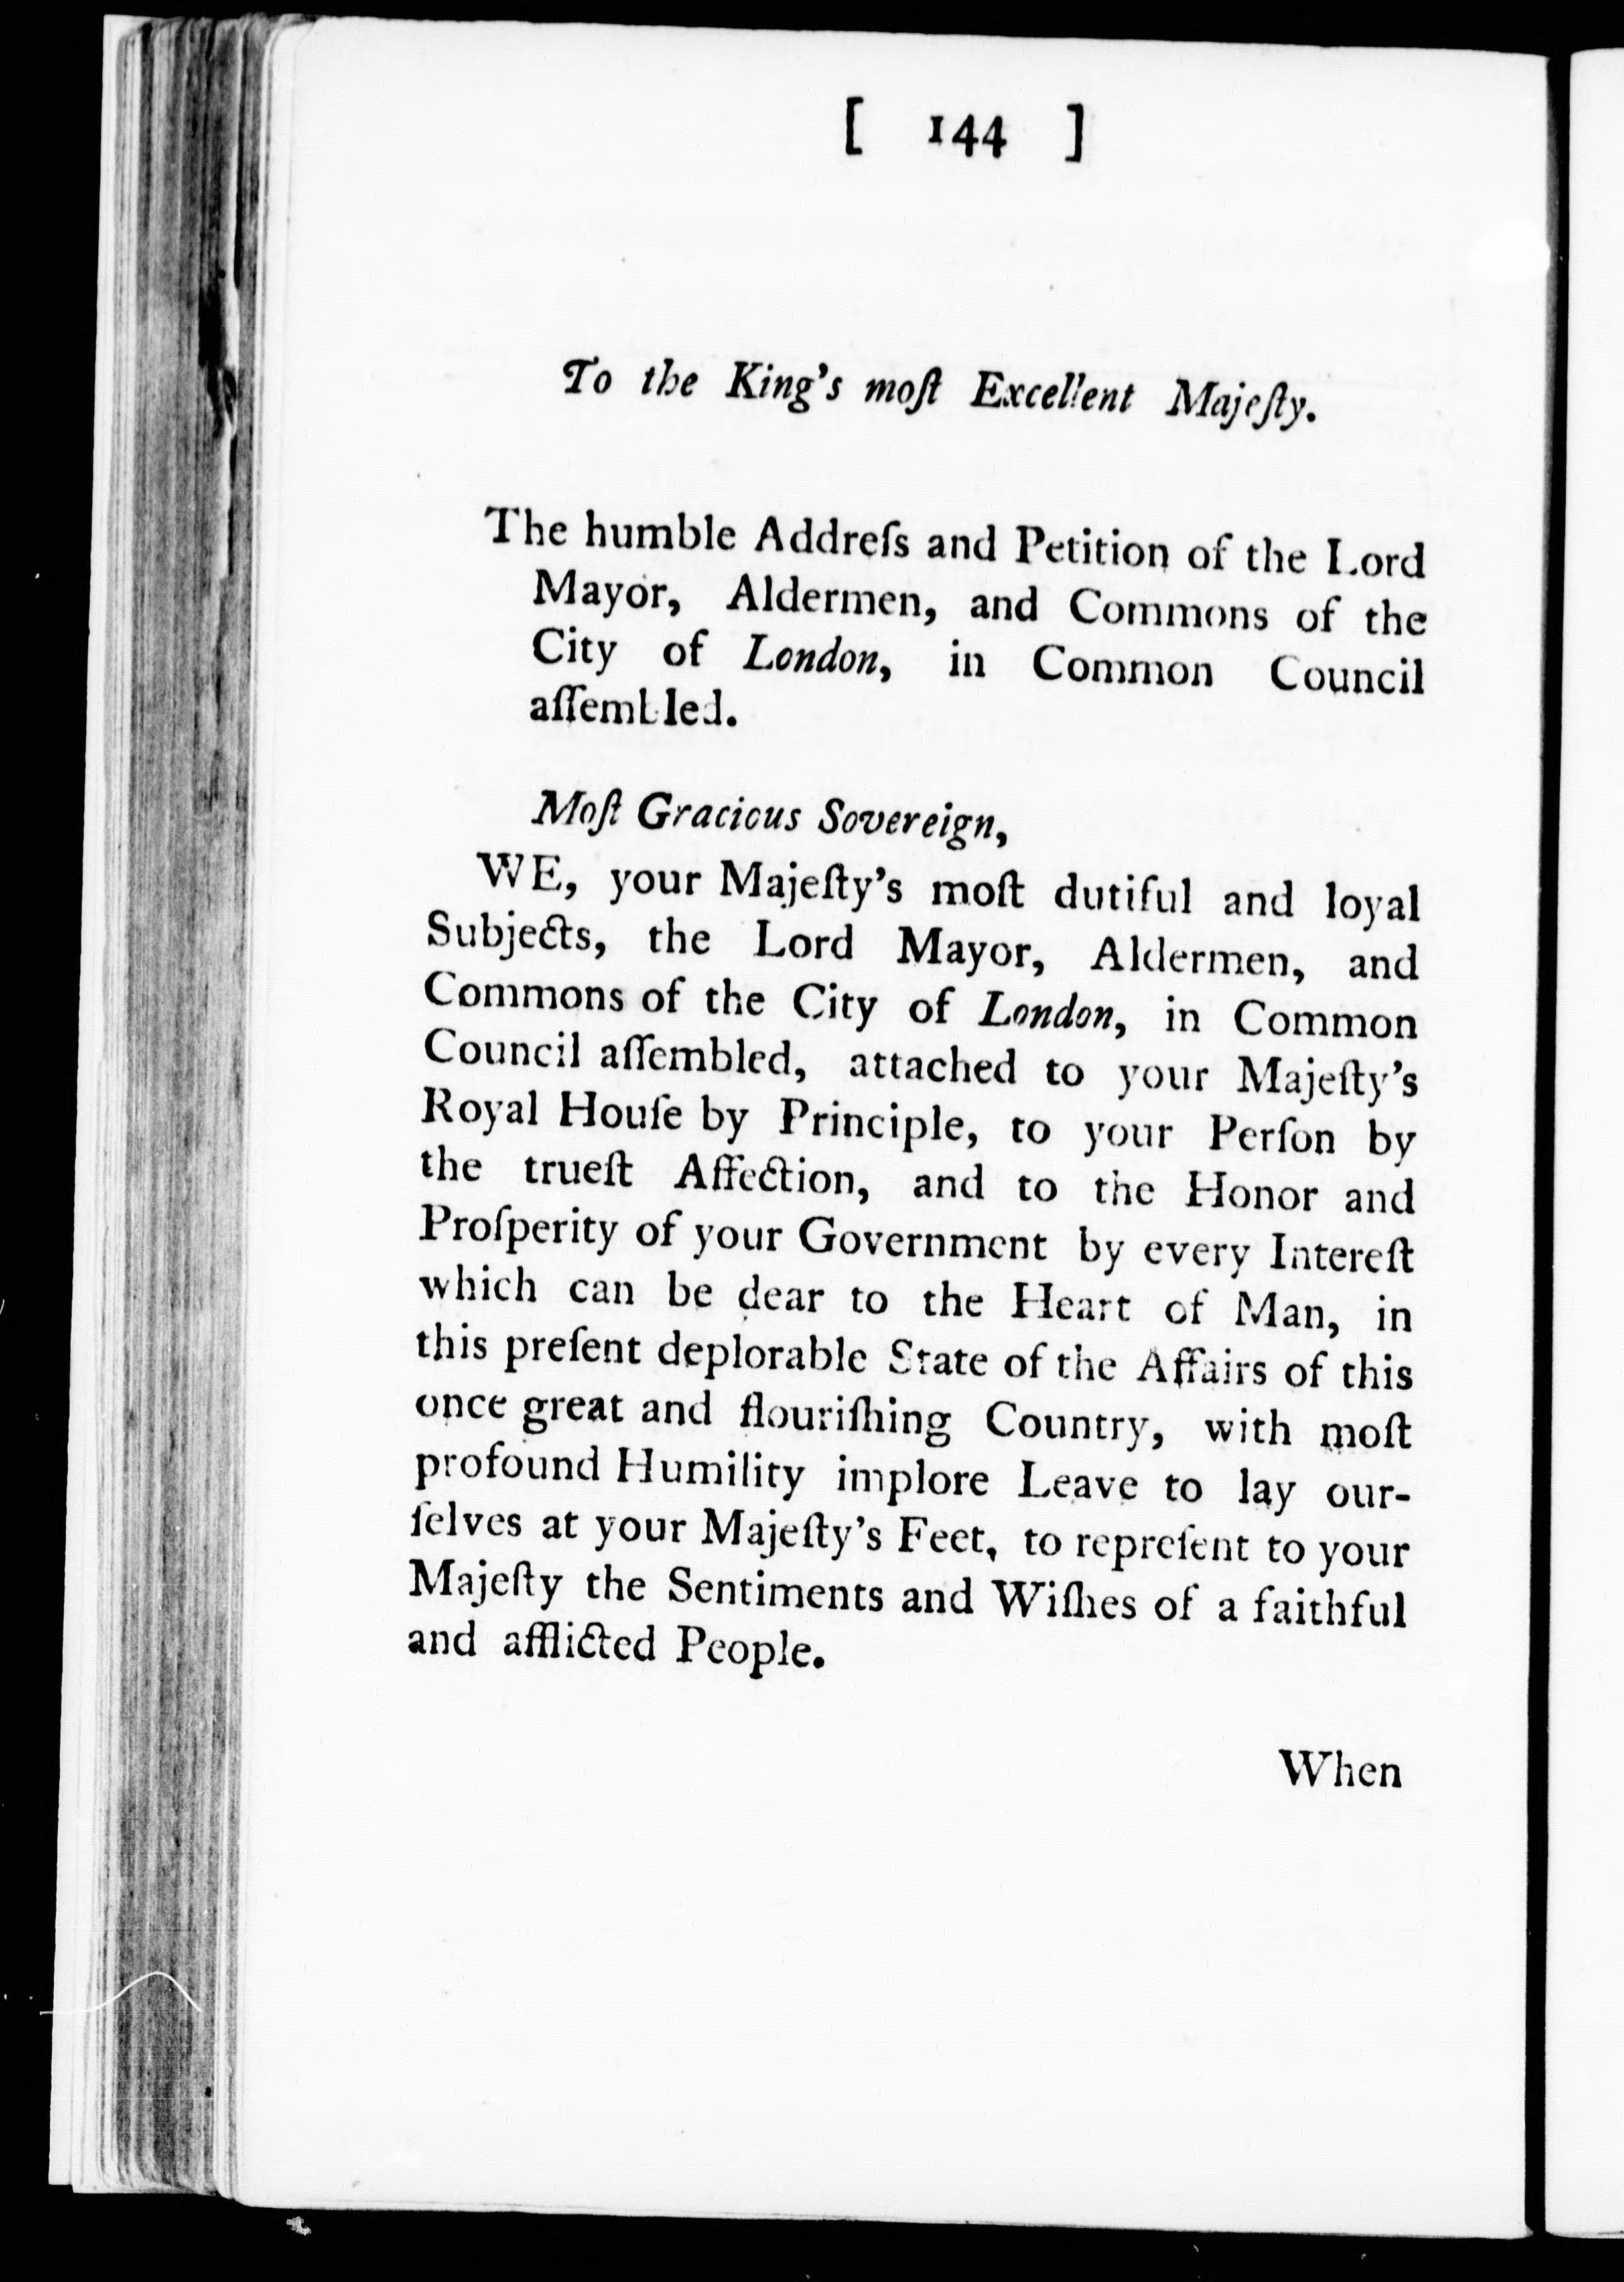 [ 144 ]
To the King's moſt Excellent Majeſty.
The humble Addreſs and Petition of the Lord
Mayor, Aldermen, and Commons of the
City of London, in Common Council
aſſembled.
Moſt Gracious Sovereign,
WE, your Majeſty's moſt dutiful and loyal
Subjects, the Lord Mayor, Aldermen, and
Commons of the City of London, in Common
Council aſſembled, attached to your Majeſty's
Royal Houſe by Principle, to your Perſon by
the trueſt Affection, and to the Honor and
Proſperity of your Government by every Intereſt
which can be dear to the Heart of Man, in
this preſent deplorable State of the Affairs of this
once great and flouriſhing Country, with moſt
profound Humility implore Leave to lay our-
ſelves at your Majeſty's Feet, to repreſent to your
Majeſty the Sentiments and Wiſhes of a faithful
and afflicted People.
When